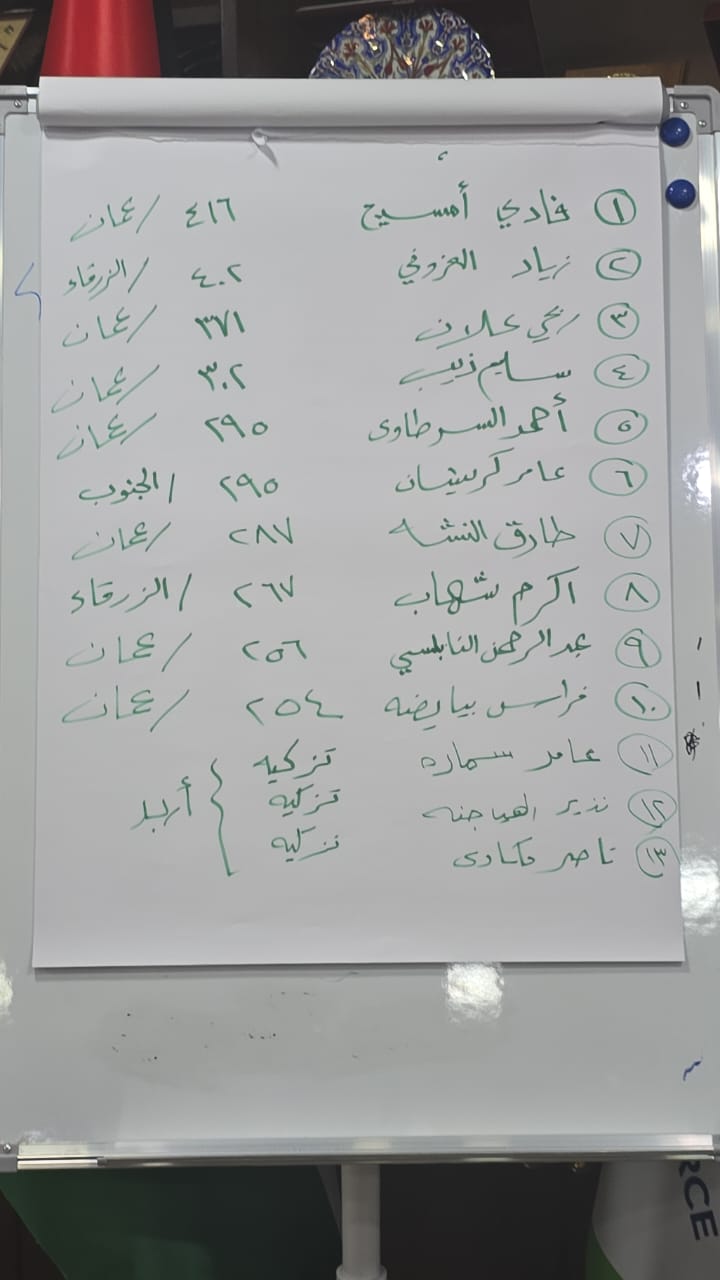 ١ فادي أمسيح ٤١٦ / عمان
٢ زياد العزوقي ٤٠٢ / الزرقاء
٣ ربحي علان ٣٧١ / عمان
٤ سليم ذيب ٣٠٢ / عمان
٥ أحمد السرطاوى ٢٩٥ / عمان
٦ عامر كريشان ٢٩٥ / الجنوب
٧ طارق النتشه ٢٨٧ / عمان
٨ اكرم شهاب ٢٦٧ / الزرقاء
٩ عبد الرحمن النابلسي ٢٥٦ / عمان
١٠ فراس بيايضه ٢٥٤ / عمان
١١ عامر سماره تزكيه
١٢ نذير الهياجنه تزكيه أربد
١٣ ناصر تزكيه
RCE